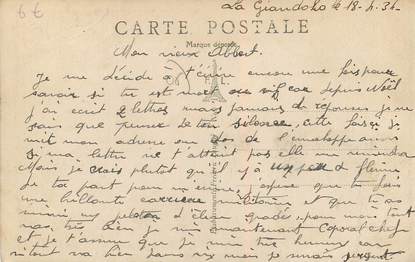 6€
La Giandola le 18-4-34
CARTE POSTALE
Marque déposée
Mon vieux Albert.
Je me décide à t'écrire encore une fois pour
savoir si tu est mort ou vif car depuis Noël
j'ai écrit 2 lettres mais jamais de réponses je ne
sais que penser de ton silence, cette fois si je
met mon adresse au dos de l'enveloppe ainsi
si ma lettre ne t'atteint pas elle me
Mais je crois plutôt qu'il y a un peu de flemme
de ta part pour m'écrire, j'espère que tu fais
une brillante carrière militaire et que tu as
au peloton d'élève gradés, pour moi tout
vas très bien je suis maintenant Caporal chef
et je t'assure que je suis très heureux car
tout va bien dans six mois je serais sergent